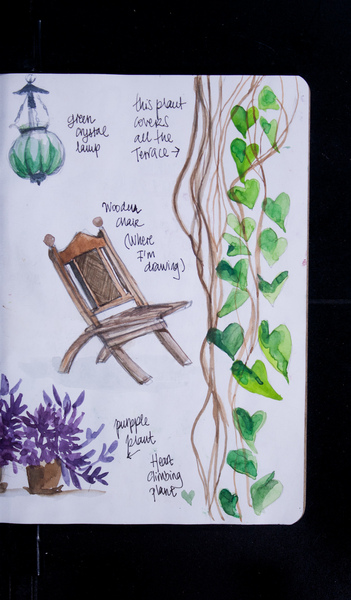 green
crystal
lamp
this plant
covers
all the
Terrace →
Wooden
chair
(Where
I'm
drawing)
purpple
plant
Heart
climbing
plant